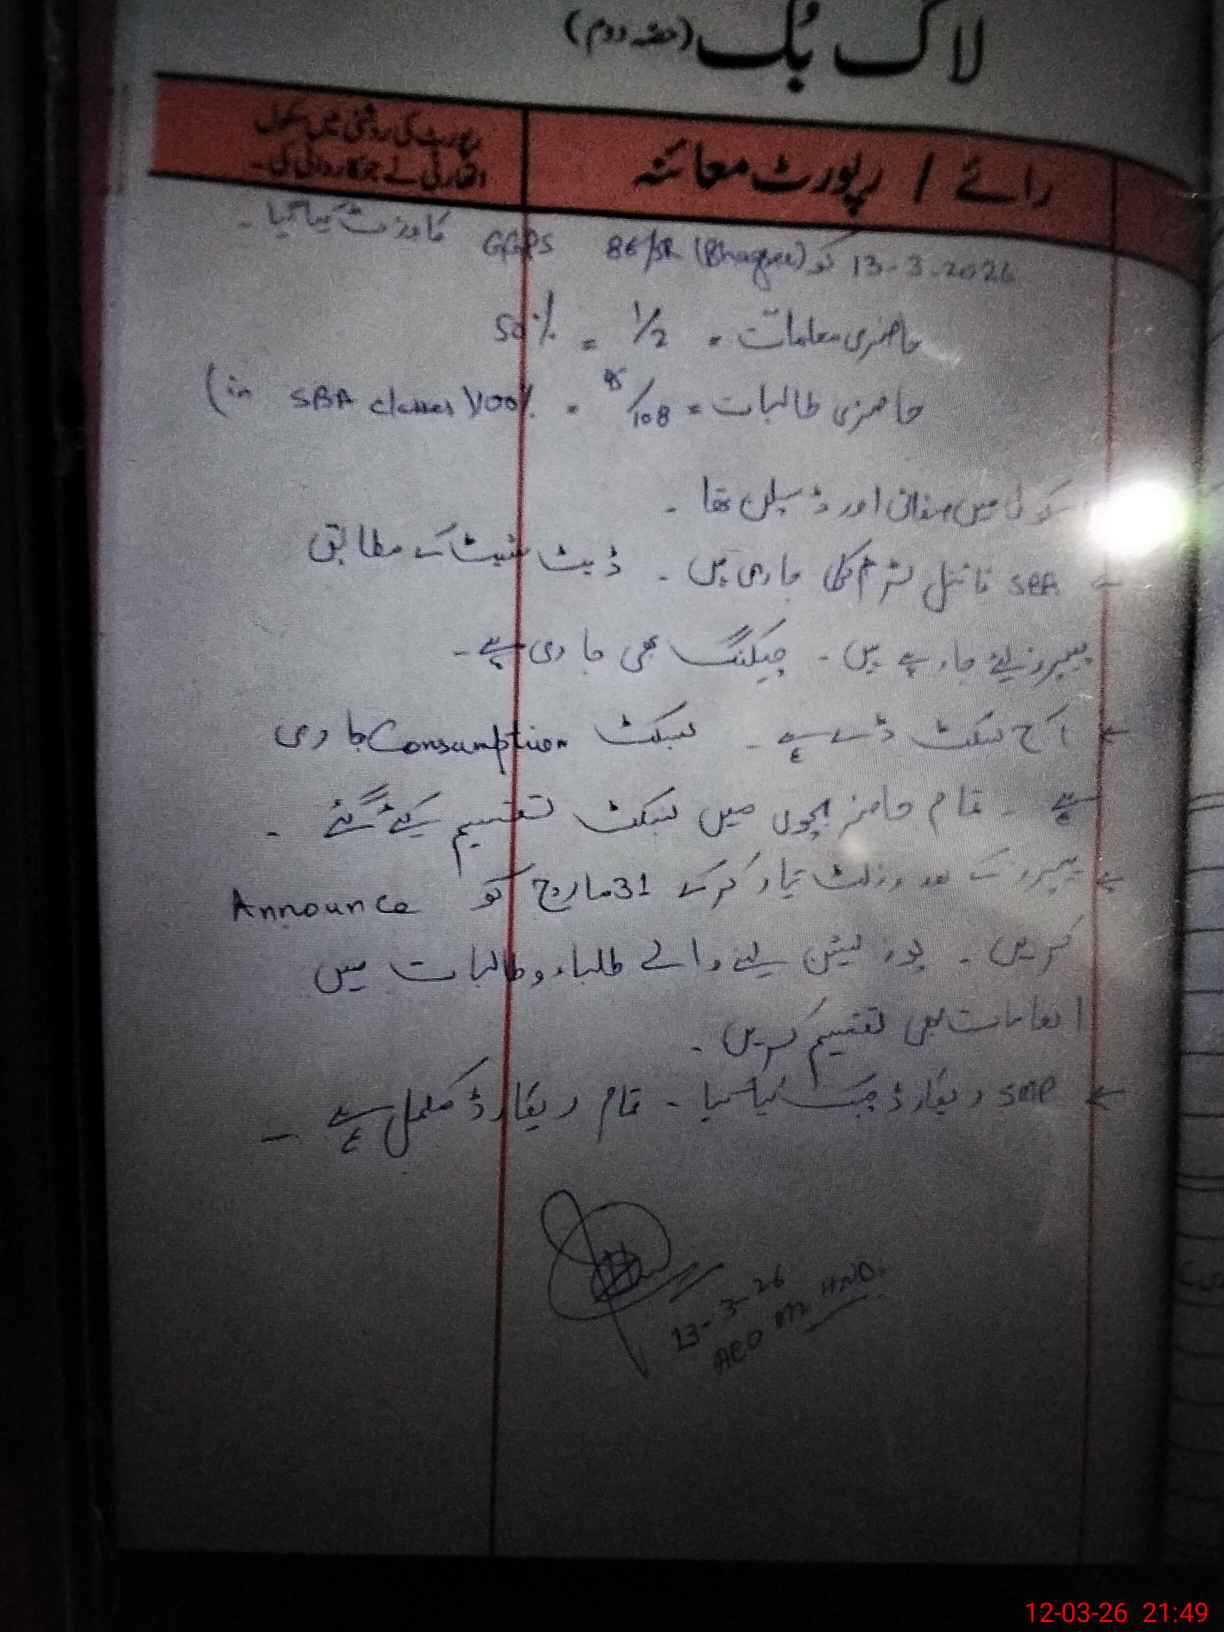 لاگ بُک (حصّہ دوم)
رائے / رپورٹ معائنہ
رپورٹ کی روشنی میں سکول
اتھارٹی نے جو کاروائی کی۔
13-3-2026 کو GGPS 86/5R (Bhagsee) کا وزٹ کیا گیا۔
حاضری معلمات = 1/2 = 50%
حاضری طالبات = /108 = 100% (in SBA classes
سکول میں صفائی اور ڈسپلن تھا۔
SBA فائنل ٹرم کی جا رہی ہیں۔ ڈیٹ شیٹ کے مطابق
پیپرز لئے جا رہے ہیں۔ چیکنگ بھی جا ری ہے۔
← آج بسکٹ ڈے ہے۔ بسکٹ Consumption جا ری
ہے۔ تمام حاضر بچوں میں بسکٹ تقسیم کیے گئے۔
پیپرز کے بعد رزلٹ تیار کر کے 31 مارچ کو Announce
کریں۔ پوزیشن لینے والے طلباء و طالبات میں
انعامات بھی تقسیم کریں۔
← ریکارڈ چیک کیا گیا۔ تمام ریکارڈ مکمل ہے۔
13-3-26
AEO
12-03-26 21:49